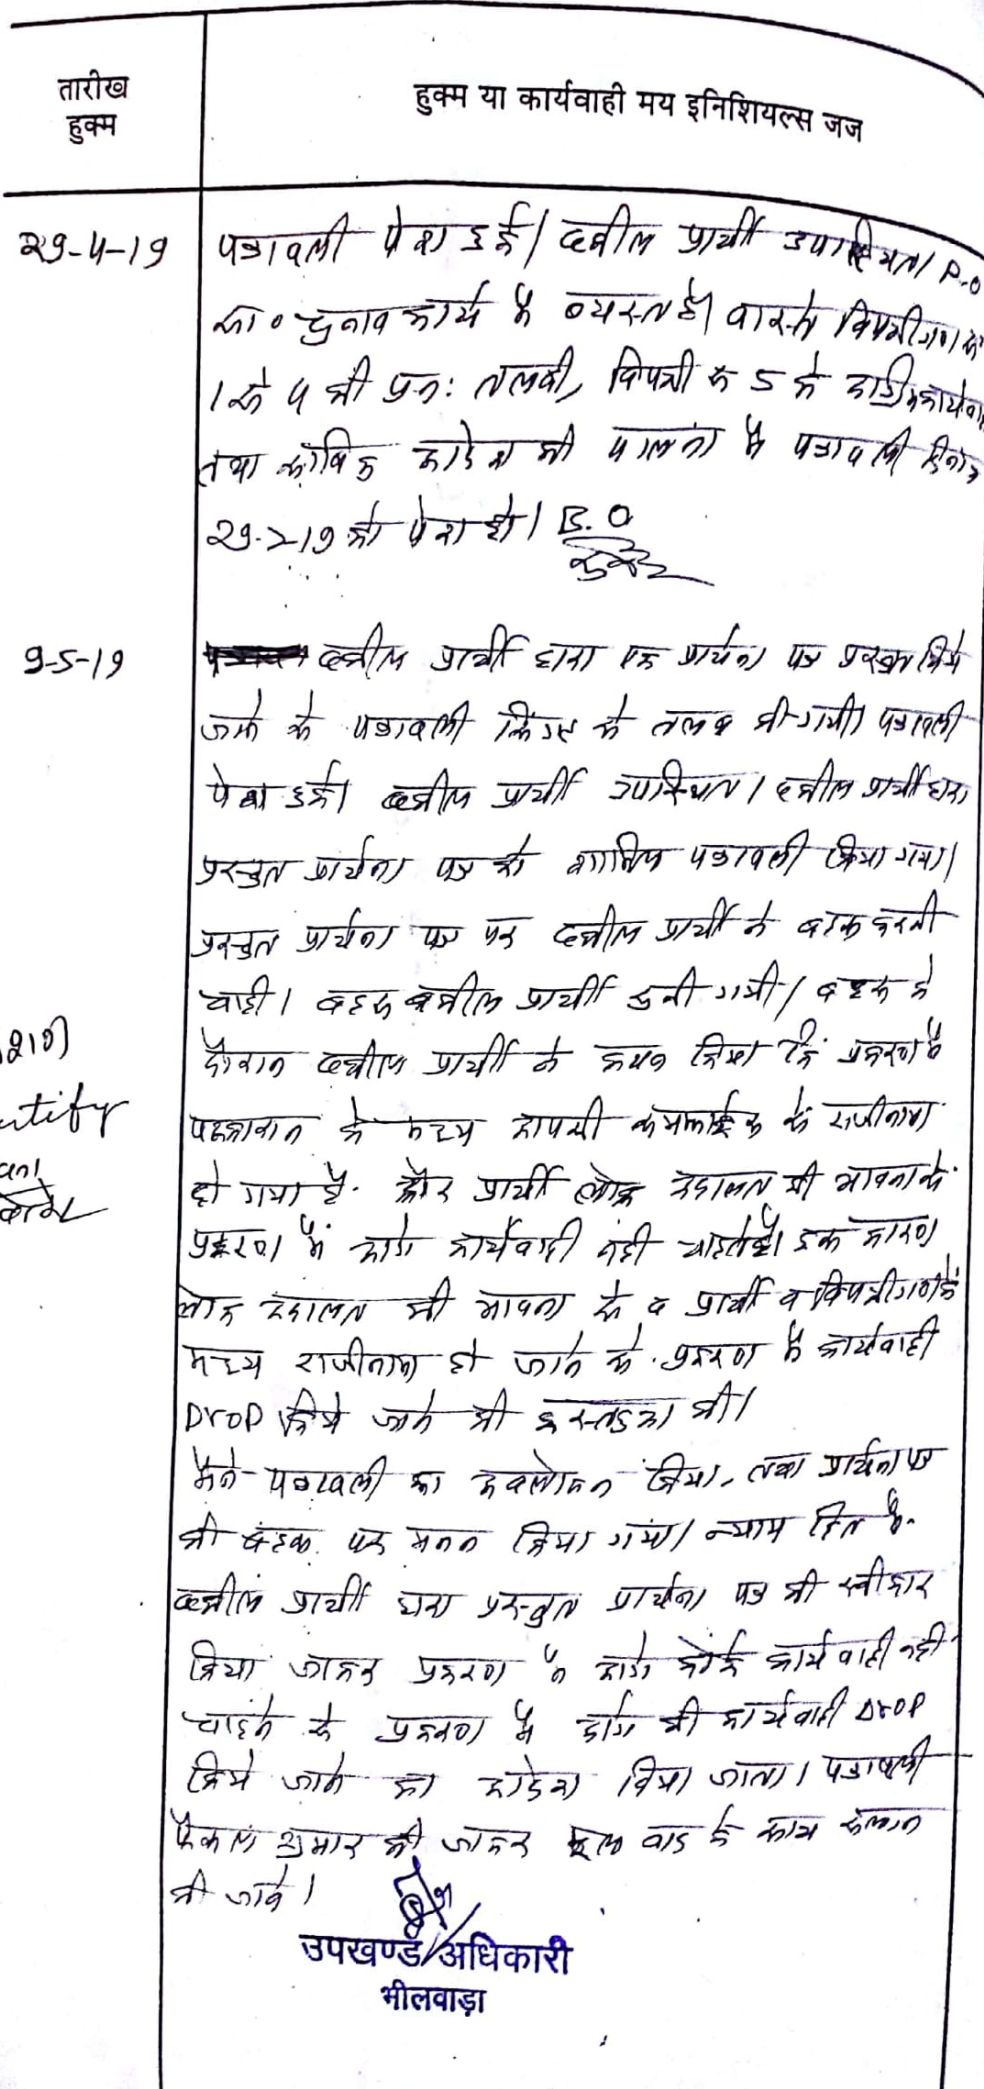 तारीख
हुक्म
हुक्म या कार्यवाही मय इनिशियल्स जज
29-4-19
पत्रावली पेश हुई। वकील प्रार्थी उपस्थित। P.O
सा० चुनाव कार्य में व्यस्त है। वास्ते विपक्षीगण सं
1 से 4 की पुनः तलबी, विपक्षी सं 5 के
तथा आदेश की पालना में पत्रावली दिनांक
29-7-19 को पेश हो। B.O
9-5-19
वकील प्रार्थी द्वारा एक प्रार्थना पत्र प्रस्तुत किये
जाने से पत्रावली से तलब की गयी। पत्रावली
पेश हुई। वकील प्रार्थी उपस्थित। वकील प्रार्थी द्वारा
प्रस्तुत प्रार्थना पत्र को शामिल पत्रावली किया गया।
प्रस्तुत प्रार्थना पत्र पर वकील प्रार्थी ने बहस करनी
चाही। बहस वकील प्रार्थी सुनी गयी। बहस के
दौरान वकील प्रार्थी ने कथन किया कि प्रकरण में
पक्षकारान के मध्य आपसी समझाईश से राजीनामा
हो गया है. और प्रार्थी लोक अदालत की भावना से
प्रकरण में आगे कार्यवाही नहीं चाहते है। इस कारण
लोक अदालत की भावना से व प्रार्थी व विपक्षीगण के
मध्य राजीनामा हो जाने से प्रकरण में कार्यवाही
DROP किये जाने की इस्तदुआ की।
मैंने पत्रावली का अवलोकन किया, तथा प्रार्थना पत्र
की बहस पर मनन किया गया। न्याय हित में
वकील प्रार्थी द्वारा प्रस्तुत प्रार्थना पत्र को स्वीकार
किया जाकर प्रकरण में आगे कोई कार्यवाही नहीं
चाहने से प्रकरण में आगे की कार्यवाही DROP
किये जाने का आदेश दिया जाता। पत्रावली
फैसल शुमार की जाकर मूल वाद के साथ संलग्न
की जावे।
उपखण्ड अधिकारी
भीलवाड़ा